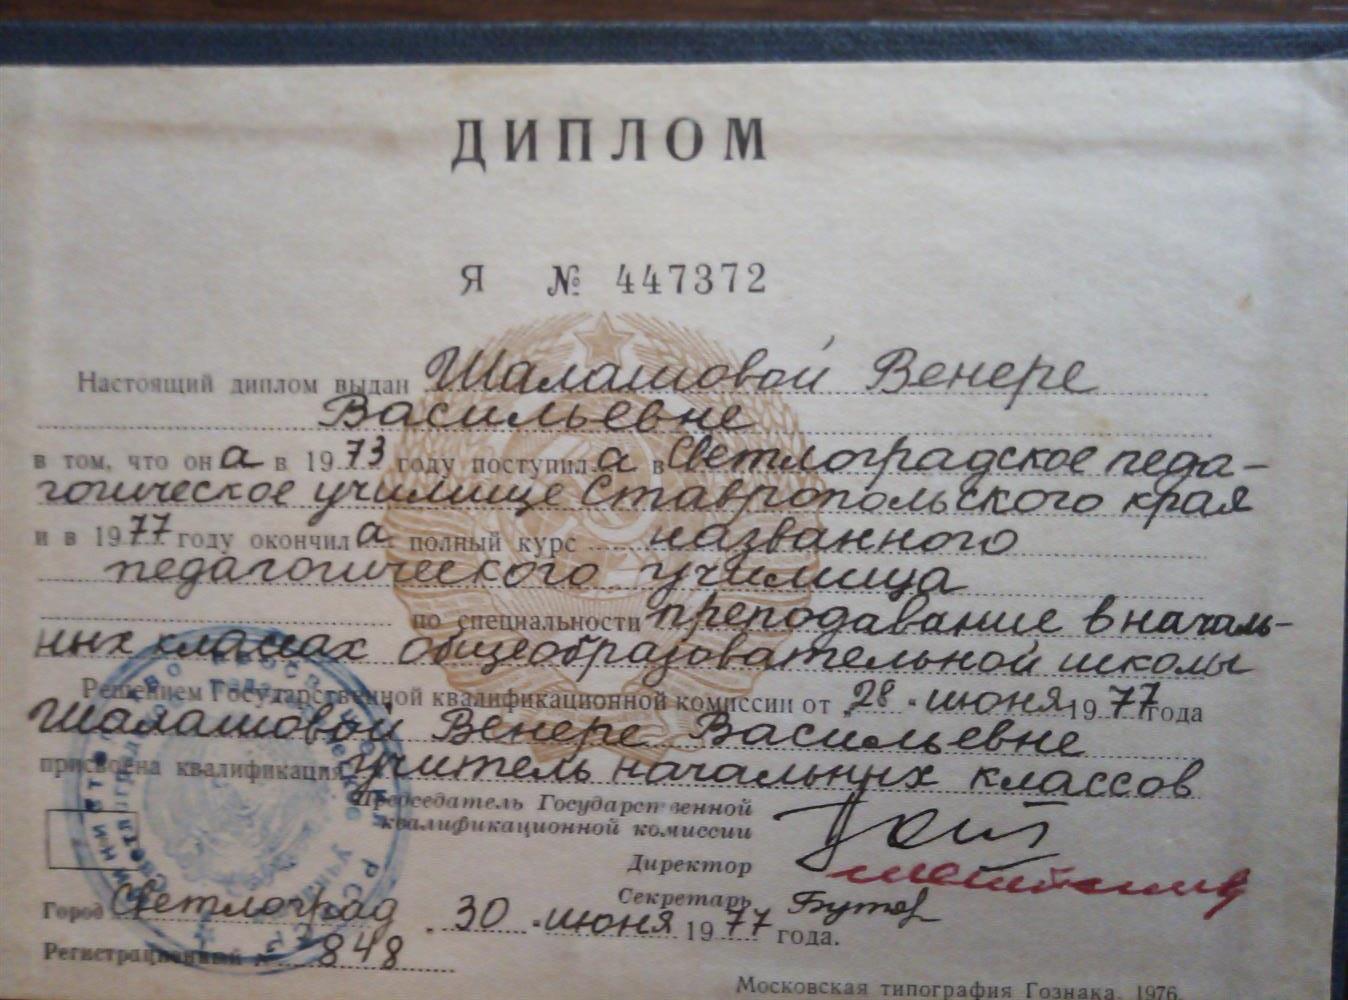 ДИПЛОМ
Я № 447372
Настоящий диплом выдан Шалашовой Венере
Васильевне
в том, что она в 1973 году поступила в Светлоградское педа-
гогическое училище Ставропольского края
и в 1977 году окончила полный курс названного
педагогического училища
по специальности преподавание в началь-
ных классах общеобразовательной школы
Решением Государственной квалификационной комиссии от "28" июня 1977 года
Шалашовой Венере Васильевне
присвоена квалификация учитель начальных классов
Председатель Государственной
квалификационной комиссии
Директор
Секретарь
Город Светлоград "30" июня 1977 года.
Регистрационный № 848
Московская типография Гознака. 1976.